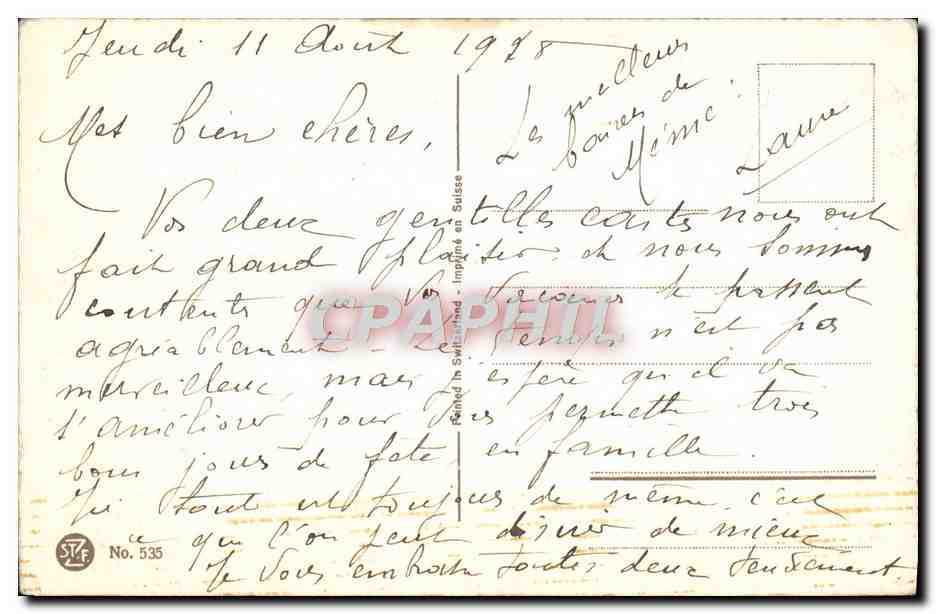 Jeudi 11 Août 1928
Mes bien chères,
Les meilleurs
baisers de
Mémé.
Laure
Vos deux gentilles cartes nous ont
fait grand plaisir et nous sommes
contents que vos vacances se passent
agréablement - Le temps n'est pas
merveilleux, mais j'espère qu'il va
s'améliorer pour vous permettre trois
bons jours de fête en famille.
Ici tout est toujours de même, c'est
ce que l'on peut désirer de mieux
Je vous embrasse toutes deux tendrement.
Printed in Switzerland - Imprimé en Suisse
CPAPHIL
STZF
No. 535